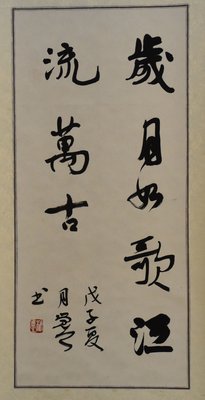 歲月如歌江
流萬古
戊子夏
月
書